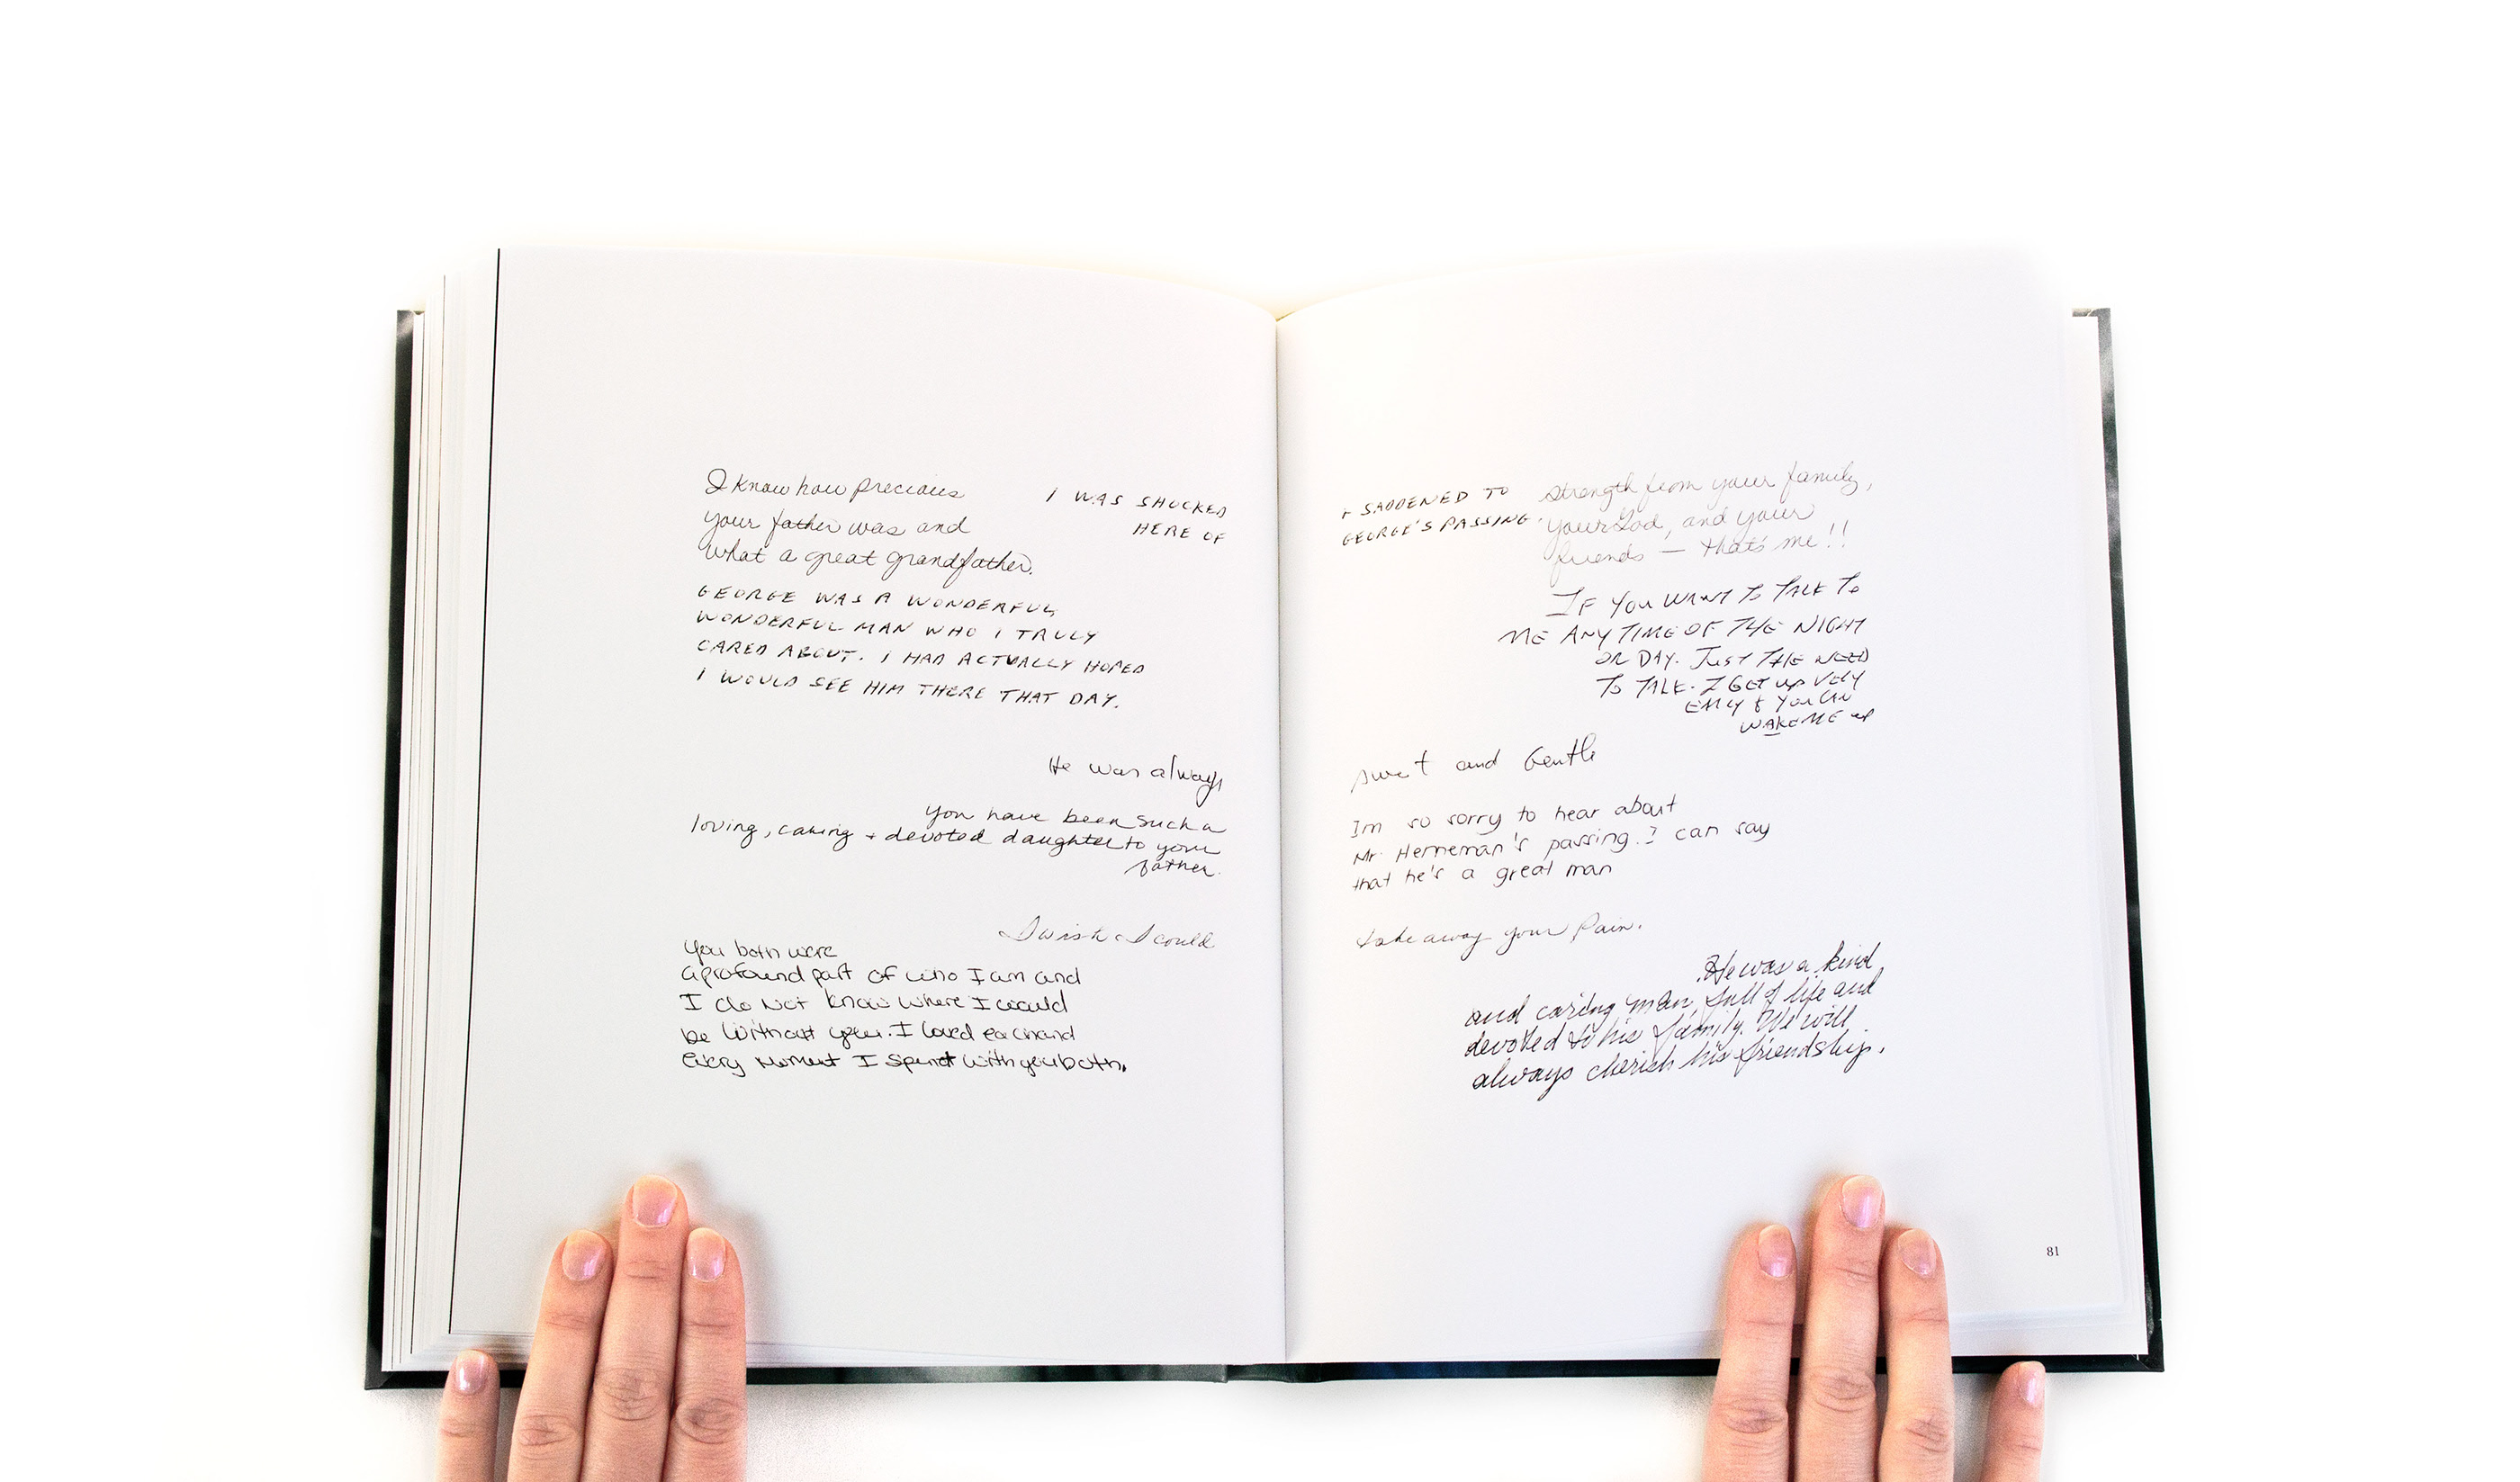 I know how precious
your father was and
what a great grandfather.
I WAS SHOCKED
HERE OF
GEORGE WAS A WONDERFUL,
WONDERFUL MAN WHO I TRULY
CARED ABOUT. I HAD ACTUALLY HOPED
I WOULD SEE HIM THERE THAT DAY.
He was always
You have been such a
loving, caring + devoted daughter to your
father.
I wish I could
You both were
a profound part of who I am and
I do not know where I would
be without you. I loved each and
every moment I spent with you both.
+ SADDENED TO
GEORGE'S PASSING.
strength from your family,
your God, and your
friends — that's me!!
IF YOU WANT TO TALK TO
ME ANY TIME OF THE NIGHT
OR DAY. JUST THE NEED
TO TALK. I GET UP VERY
EARLY & YOU CAN
WAKE ME UP
sweet and Gentle
Im so sorry to hear about
Mr. Herneman's passing. I can say
that he's a great man
take away your pain.
He was a kind
and caring man, full of life and
devoted to his family. We will
always cherish his friendship.
81